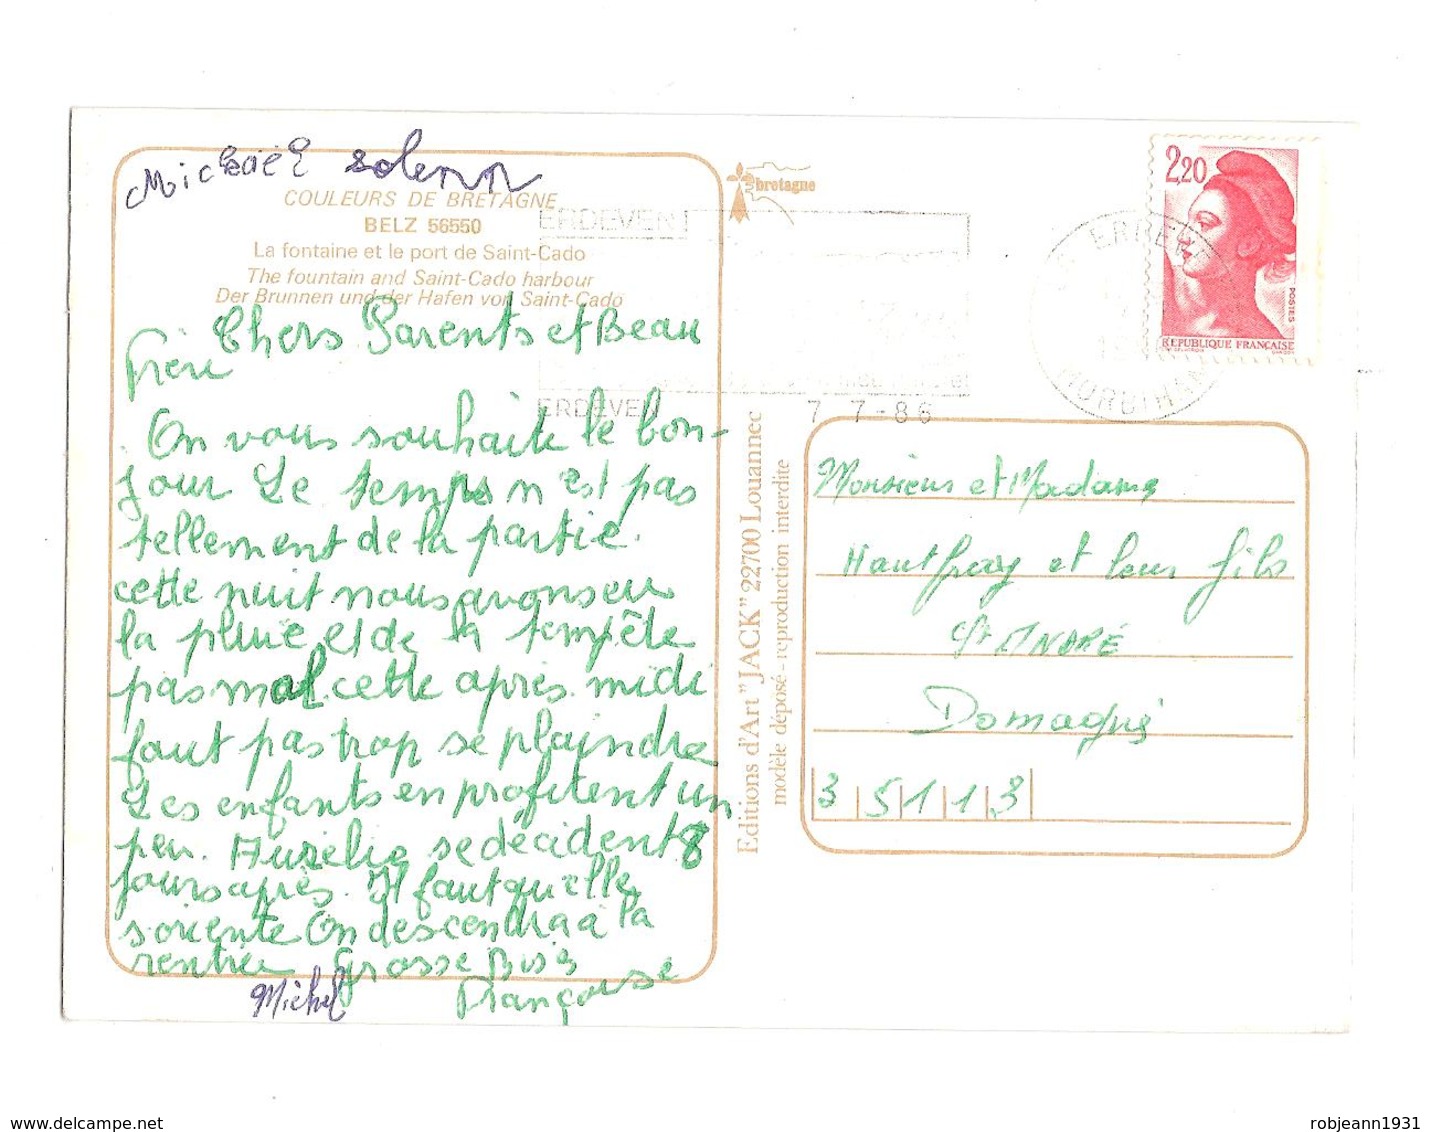 Mickaël solenn
COULEURS DE BRETAGNE
BELZ 56550
La fontaine et le port de Saint-Cado
The fountain and Saint-Cado harbour
Der Brunnen und der Hafen von Saint-Cado
Chers Parents et Beau
frère
On vous souhaite le bon-
jour Le temps n'est pas
tellement de la partie.
cette nuit nous avons eu
la pluie et de la tempête
pas mal. cette après midi
faut pas trop se plaindre
Les enfants en profitent un
peu. Aurélie se décident 8
jours après. Il faut qu'elle
soriente On descendra a la
rentrée Grosse Bises
Michel Françoise
Editions d'Art "JACK" 22700 Louannec
modèle déposé - reproduction interdite
bretagne
ERDEVEN
ERDEVEN
7 7 - 86
2,20
POSTES
REPUBLIQUE FRANÇAISE
Monsieur et Madame
Hautfray et leur fils
St ANDRÉ
Domagné
3 5 1 1 3
www.delcampe.net
robjeann1931